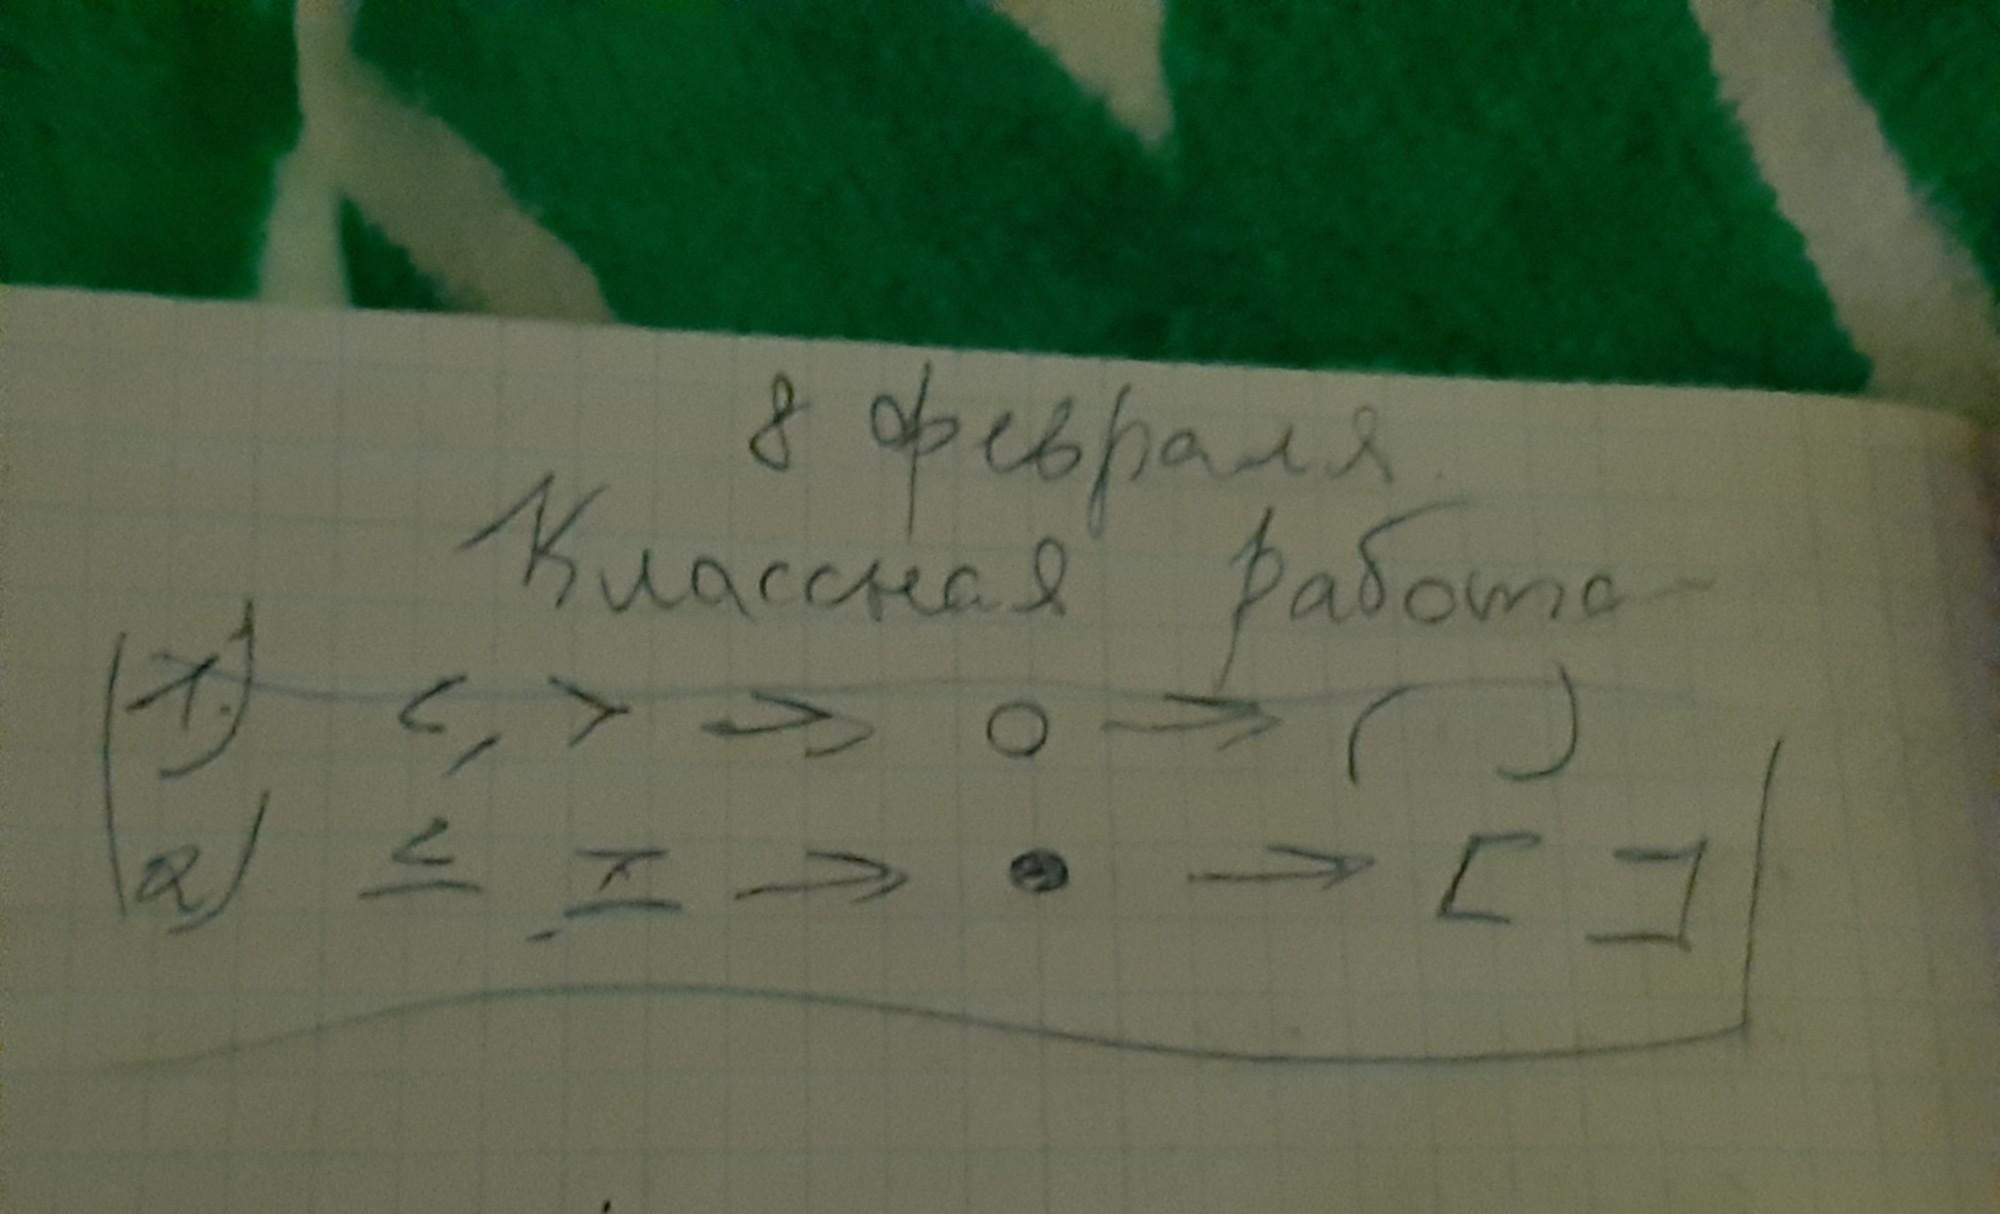 8 февраля.
Классная работа
1) <, > → ○ → ( )
2) ≤, ≥ → ● → [ ]